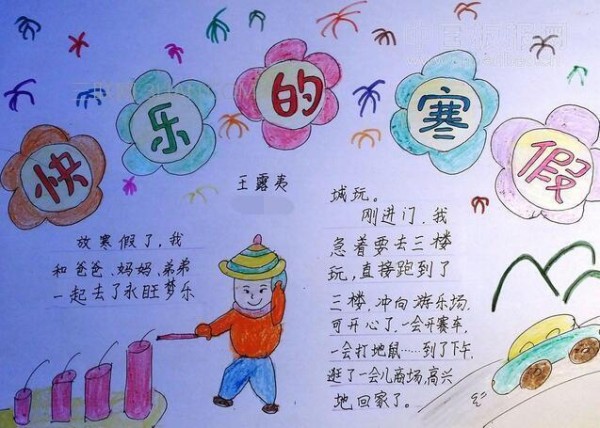 快乐的寒假
王露夷
放寒假了,我
和爸爸、妈妈、弟弟
一起去了永旺梦乐
城玩。
刚进门,我
急着要去三楼
玩,直接跑到了
三楼,冲向游乐场,
可开心了,一会开赛车,
一会打地鼠……到了下午,
逛了一会儿商场,高兴
地回家了。